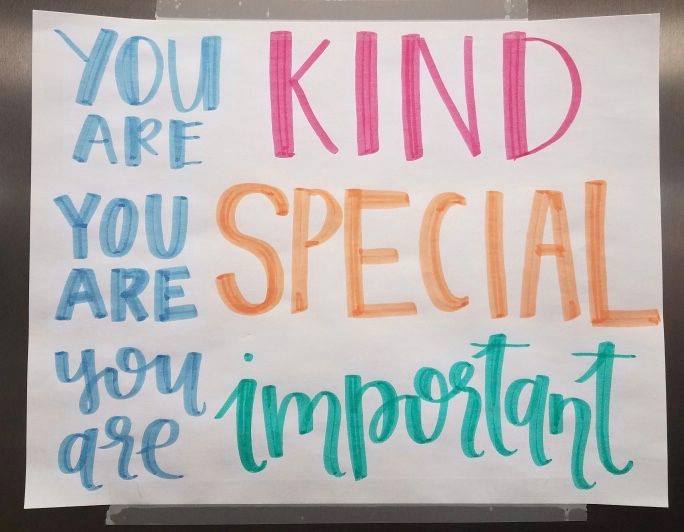 YOU ARE KIND
YOU ARE SPECIAL
you are important